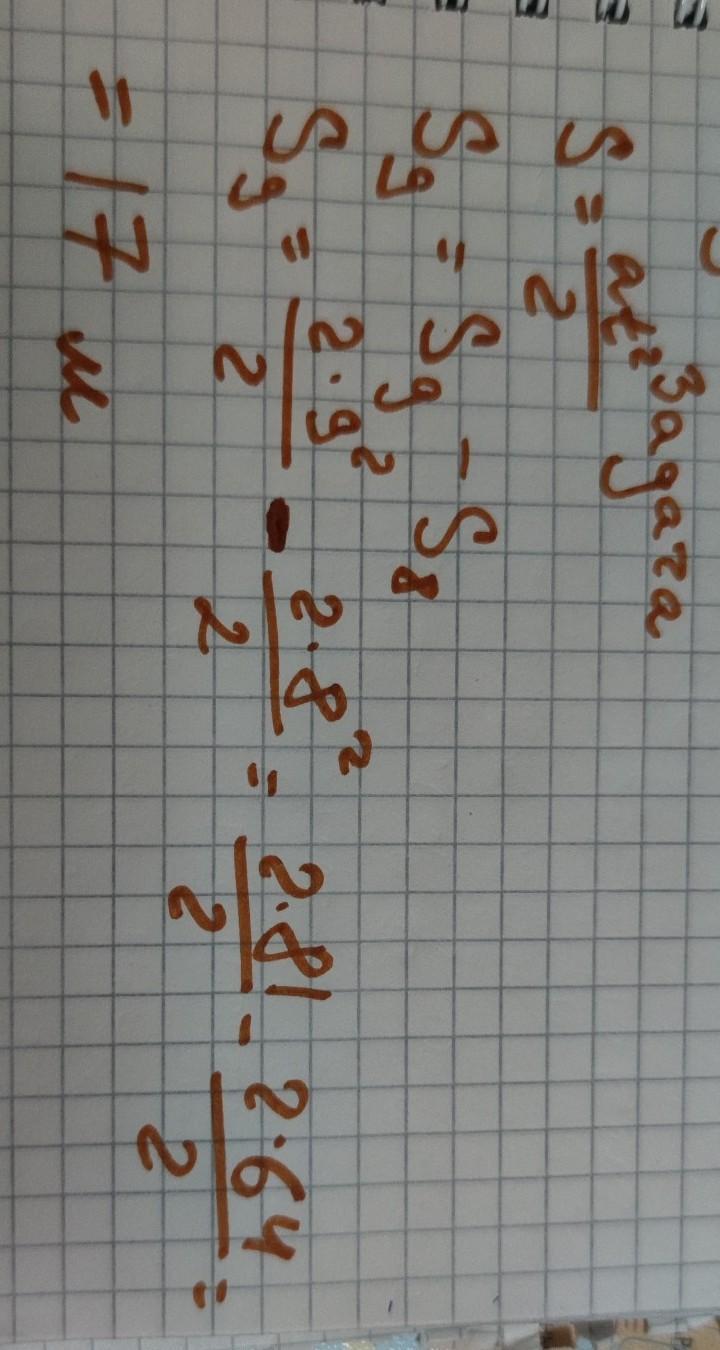 Задача
S = at²/2
S₉ = S₉ - S₈
S₉ = 2·9²/2 - 2·8²/2 = 2·81/2 - 2·64/2 =
= 17 м